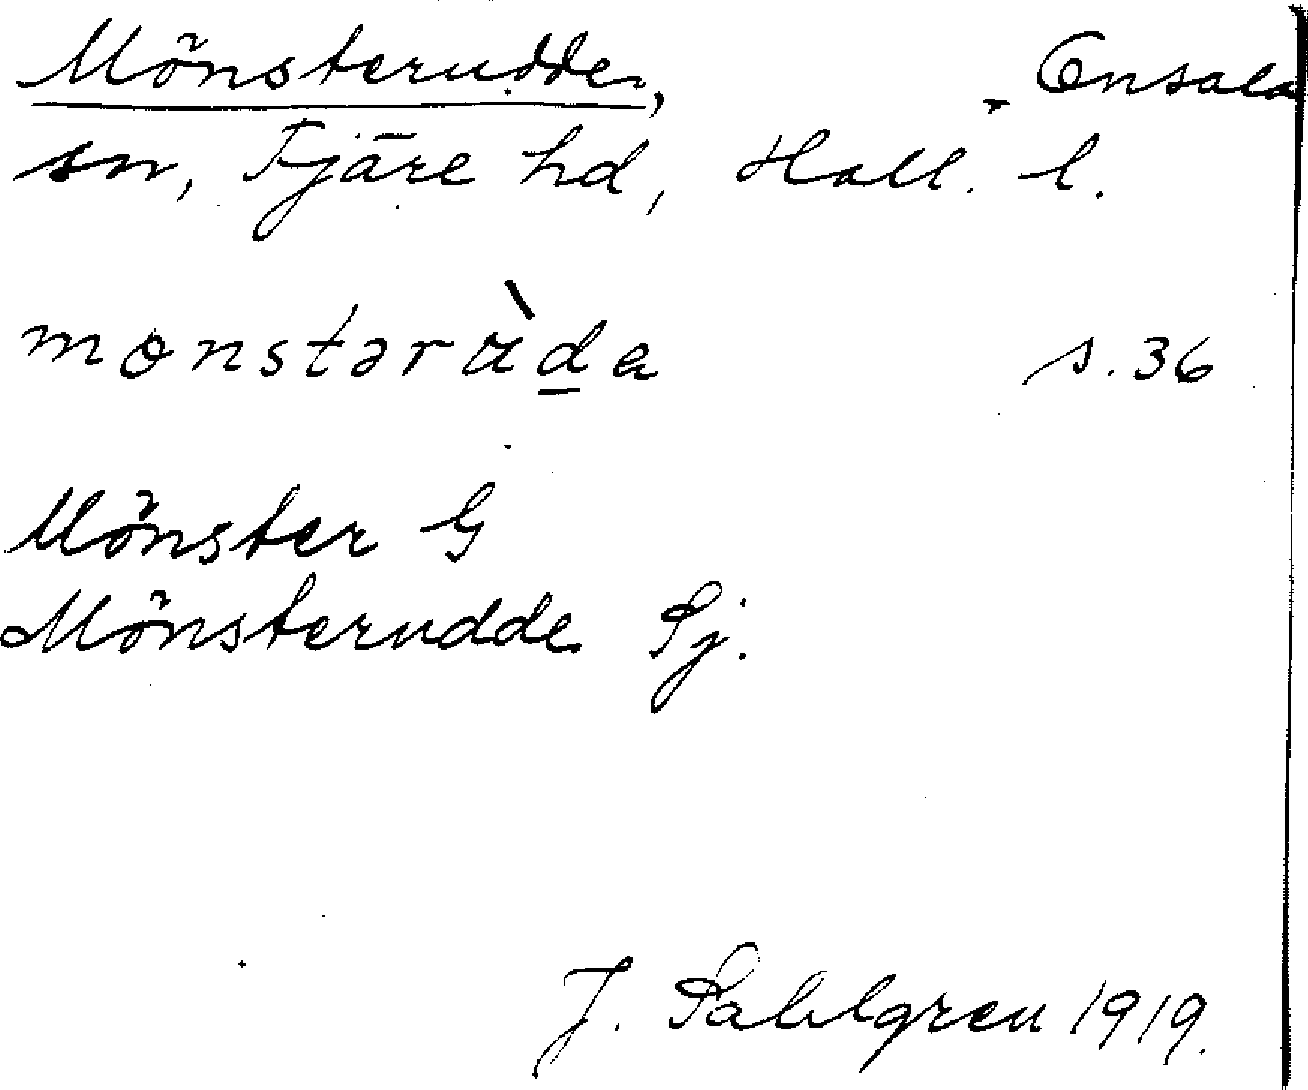 Mönsterudden, Onsala
sn, Fjäre hd, Hall. l.
monstəràda s. 36
Mönster G
Mönsterudde Sj.
J. Sahlgren 1919.